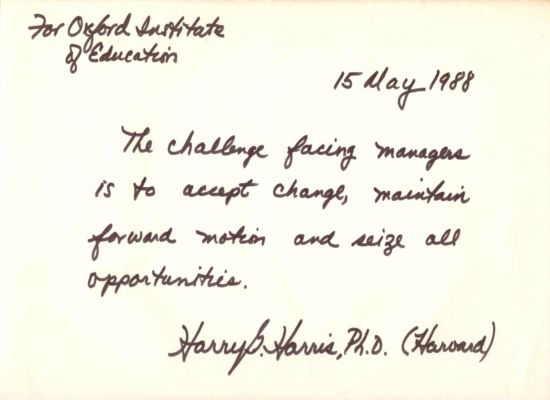 For Oxford Institute
of Education
15 May 1988
The challenge facing managers
is to accept change, maintain
forward motion and seize all
opportunities.
Harry G. Harris, Ph.D. (Harvard)